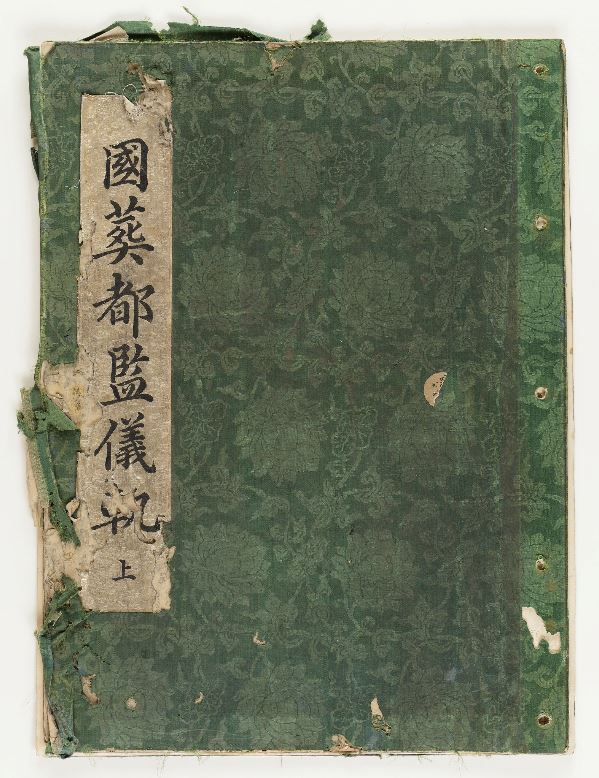 國葬都監儀軌
上